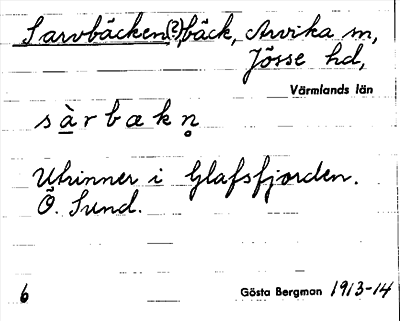 Sarvbäcken(?), bäck, Arvika m,
Jösse hd,
Värmlands län
sàrbækn̥
Utrinner i Glafsfjorden.
Ö. Sund.
6
Gösta Bergman 1913-14